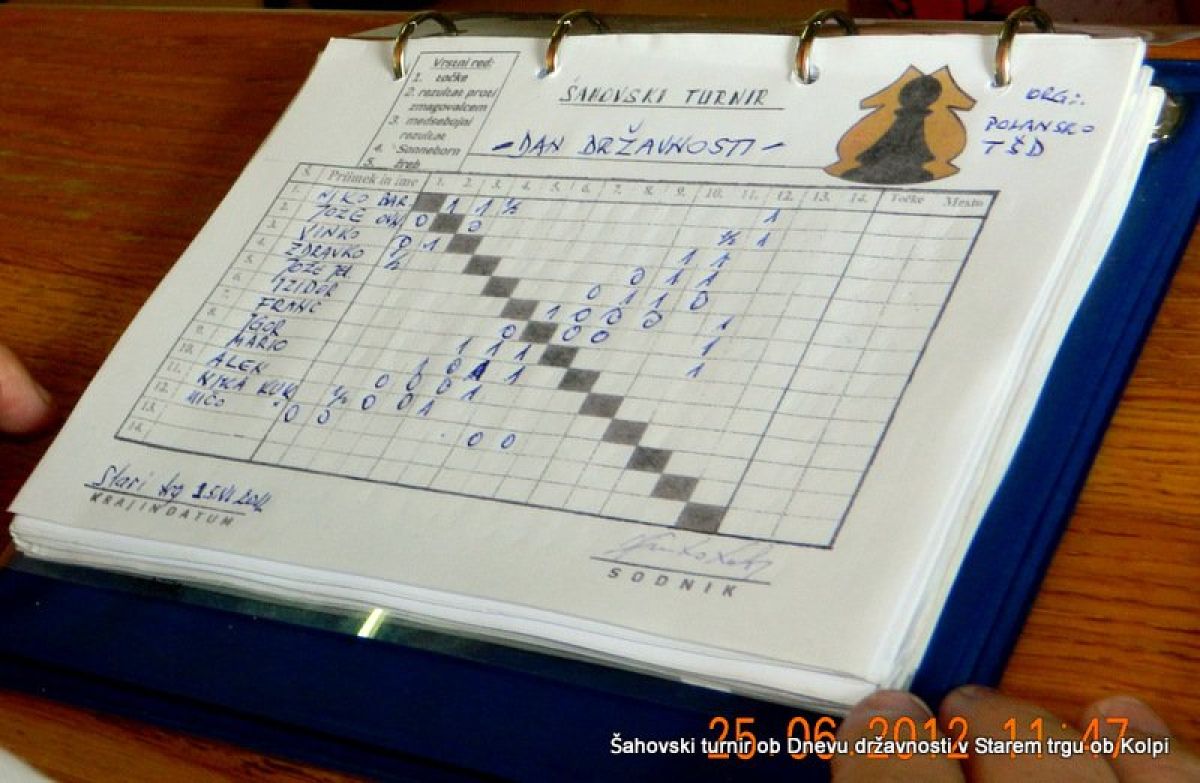 Vrstni red:
1. točke
2. rezultat proti
zmagovalcem
3. medsebojni
rezultat
4. Sonneborn
5. žreb
ŠAHOVSKI TURNIR
-DAN DRŽAVNOSTI-
ORG:
POLANSKO
TŠD
Š. Priimek in ime 1. 2. 3. 4. 5. 6. 7. 8. 9. 10. 11. 12. 13. 14. Točke Mesto
1. NIKO BAR 1 1 ½ 1
2. JOŽE 0 0 ½ 1
3. VINKO 1 1 1
4. ZDRAVKO ½ 0 1 1
5. JOŽE 0 1 1 0
6. IZIDOR 1 0 0 0
7. FRANC 0 0 0 1
8. IGOR 1 1 1 1
9. MARIO 1 0 1 1
10. ALEN 0 0 0 1
11. NIKA KUK ½ 0 0 1
12. MIČO 0 0
13. 0 0
14.
Stari trg
KRAJ IN DATUM
SODNIK
25 06 2012 11:47
Šahovski turnir ob Dnevu državnosti v Starem trgu ob Kolpi